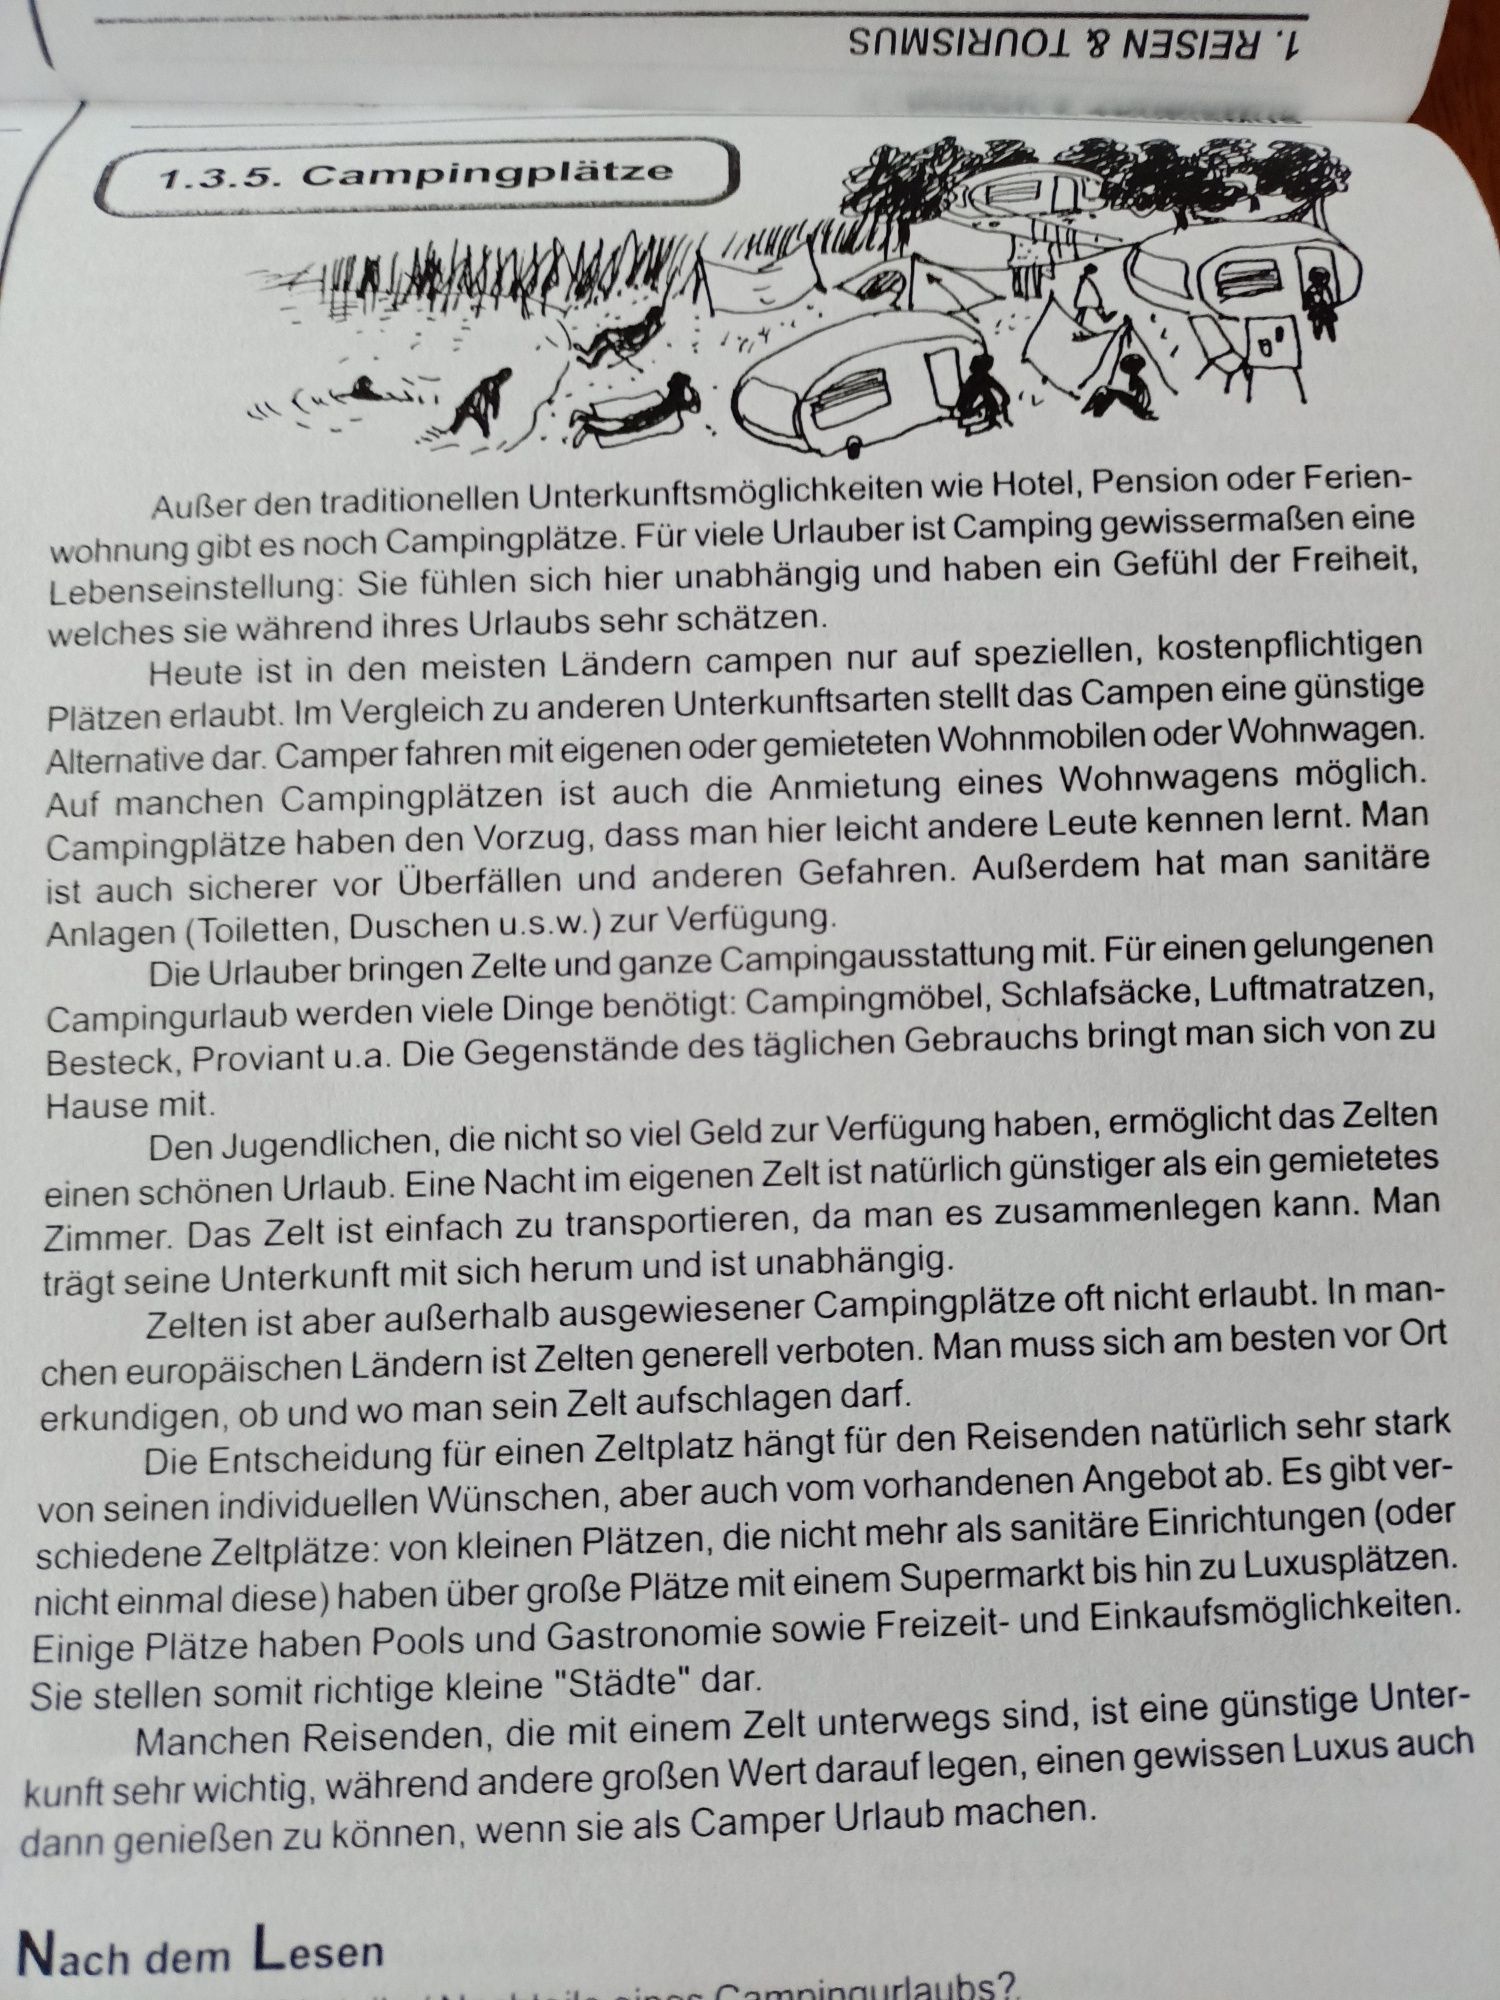 1. REISEN & TOURISMUS
1.3.5. Campingplätze
Außer den traditionellen Unterkunftsmöglichkeiten wie Hotel, Pension oder Ferien-
wohnung gibt es noch Campingplätze. Für viele Urlauber ist Camping gewissermaßen eine
Lebenseinstellung: Sie fühlen sich hier unabhängig und haben ein Gefühl der Freiheit,
welches sie während ihres Urlaubs sehr schätzen.
Heute ist in den meisten Ländern campen nur auf speziellen, kostenpflichtigen
Plätzen erlaubt. Im Vergleich zu anderen Unterkunftsarten stellt das Campen eine günstige
Alternative dar. Camper fahren mit eigenen oder gemieteten Wohnmobilen oder Wohnwagen.
Auf manchen Campingplätzen ist auch die Anmietung eines Wohnwagens möglich.
Campingplätze haben den Vorzug, dass man hier leicht andere Leute kennen lernt. Man
ist auch sicherer vor Überfällen und anderen Gefahren. Außerdem hat man sanitäre
Anlagen (Toiletten, Duschen u.s.w.) zur Verfügung.
Die Urlauber bringen Zelte und ganze Campingausstattung mit. Für einen gelungenen
Campingurlaub werden viele Dinge benötigt: Campingmöbel, Schlafsäcke, Luftmatratzen,
Besteck, Proviant u.a. Die Gegenstände des täglichen Gebrauchs bringt man sich von zu
Hause mit.
Den Jugendlichen, die nicht so viel Geld zur Verfügung haben, ermöglicht das Zelten
einen schönen Urlaub. Eine Nacht im eigenen Zelt ist natürlich günstiger als ein gemietetes
Zimmer. Das Zelt ist einfach zu transportieren, da man es zusammenlegen kann. Man
trägt seine Unterkunft mit sich herum und ist unabhängig.
Zelten ist aber außerhalb ausgewiesener Campingplätze oft nicht erlaubt. In man-
chen europäischen Ländern ist Zelten generell verboten. Man muss sich am besten vor Ort
erkundigen, ob und wo man sein Zelt aufschlagen darf.
Die Entscheidung für einen Zeltplatz hängt für den Reisenden natürlich sehr stark
von seinen individuellen Wünschen, aber auch vom vorhandenen Angebot ab. Es gibt ver-
schiedene Zeltplätze: von kleinen Plätzen, die nicht mehr als sanitäre Einrichtungen (oder
nicht einmal diese) haben über große Plätze mit einem Supermarkt bis hin zu Luxusplätzen.
Einige Plätze haben Pools und Gastronomie sowie Freizeit- und Einkaufsmöglichkeiten.
Sie stellen somit richtige kleine "Städte" dar.
Manchen Reisenden, die mit einem Zelt unterwegs sind, ist eine günstige Unter-
kunft sehr wichtig, während andere großen Wert darauf legen, einen gewissen Luxus auch
dann genießen zu können, wenn sie als Camper Urlaub machen.
Nach dem Lesen
Nachteile eines Campingurlaubs?